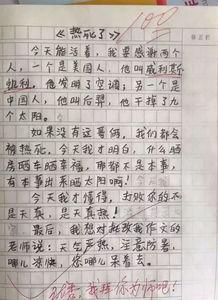 100
《热死了》
今天能活着，我要感谢两个
人，一个是美国人，他叫威利斯
凯利。他发明了空调；另一个是
中国人，他叫后羿，他干掉了九
个太阳。
如果没有这哥俩，我们都会
被热死。今天我才明白，什么晒
房晒车晒幸福，那都不是本事，
有本事出来晒太阳啊！
今天我才懂得，打败你的不
是天真，是天真热！
最后，我想对批改我作文的
老师说：天气严热，注意防暑，
哪儿凉快，您哪儿呆着去。
我拜你为师吧！